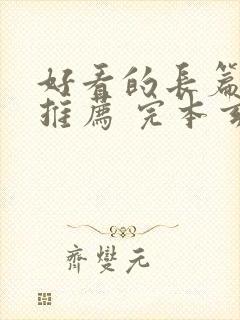 好看的長篇
推薦 完本
齊燮元